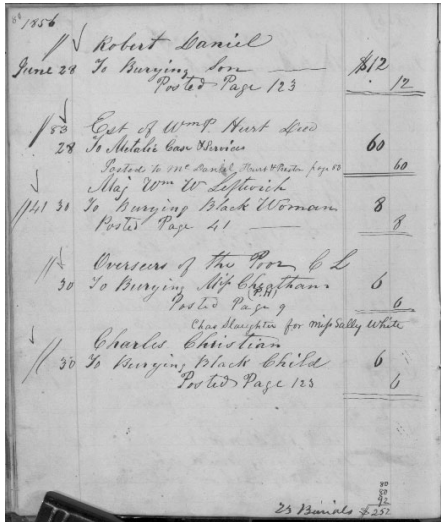 88 1856
Robert Daniel
June 28 To Burying Son $12
Posted Page 123 12
83 Est of Wm P. Hurt Decd
28 To Metalic Case & Services 60
Posted to Mc Daniel Hurt & Preston page 83 60
Maj Wm W Leftwich
41 30 To Burying Black Woman 8
Posted Page 41 8
Overseers of the Poor C L
30 To Burying Miss Cheatham 6
(P.H)
Posted Page 9 6
Chas Slaughter for miss Sally White
Charles Christian
30 To Burying Black Child 6
Posted Page 123 6
80
80
92
23 Burials $252